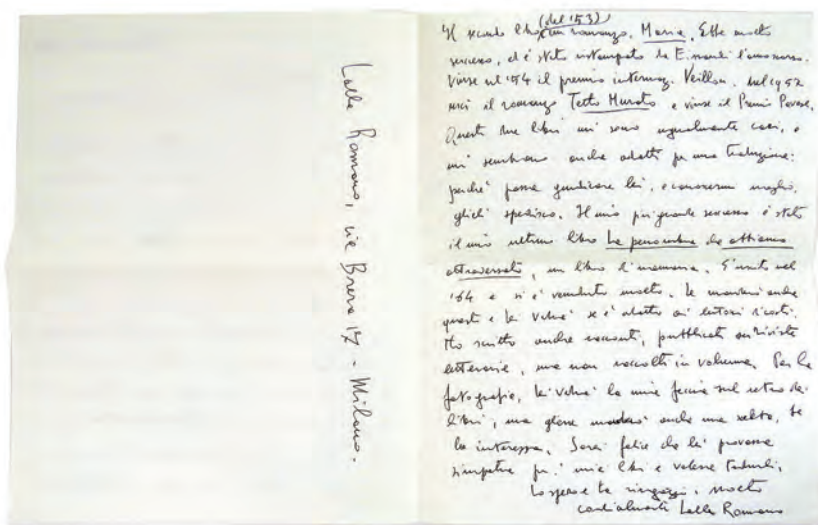 Lalla Romano, via Brera 17 - Milano.
(del '53)
Il secondo libro è un romanzo, Maria. Ebbe molto
successo, ed è stato ristampato da Einaudi l'anno scorso.
Vinse nel '54 il premio internaz. Veillon. Nel 1957
uscì il romanzo Tetto Murato e vinse il Premio Pavese.
Questi due libri mi sono ugualmente cari, e
mi sembrano anche adatti per una traduzione:
perché possa giudicare lei, e conoscermi meglio,
glieli spedisco. Il mio più grande successo è stato
il mio ultimo libro La penombra che abbiamo
attraversato, un libro di memoria. È uscito nel
'64 e si è venduto molto. Le manderò anche
questo e lei vedrà se è adatto ai lettori
Ho scritto anche racconti, pubblicati su riviste
letterarie, ma non raccolti in volume. Per la
fotografia, lei vedrà la mia faccia sul retro dei
libri, ma gliene manderò anche una a parte, se
le interessa. Sarei felice che lei provasse
simpatia per i miei libri e volesse tradurli.
Lo spero e la ringrazio. molto
cordialmente Lalla Romano